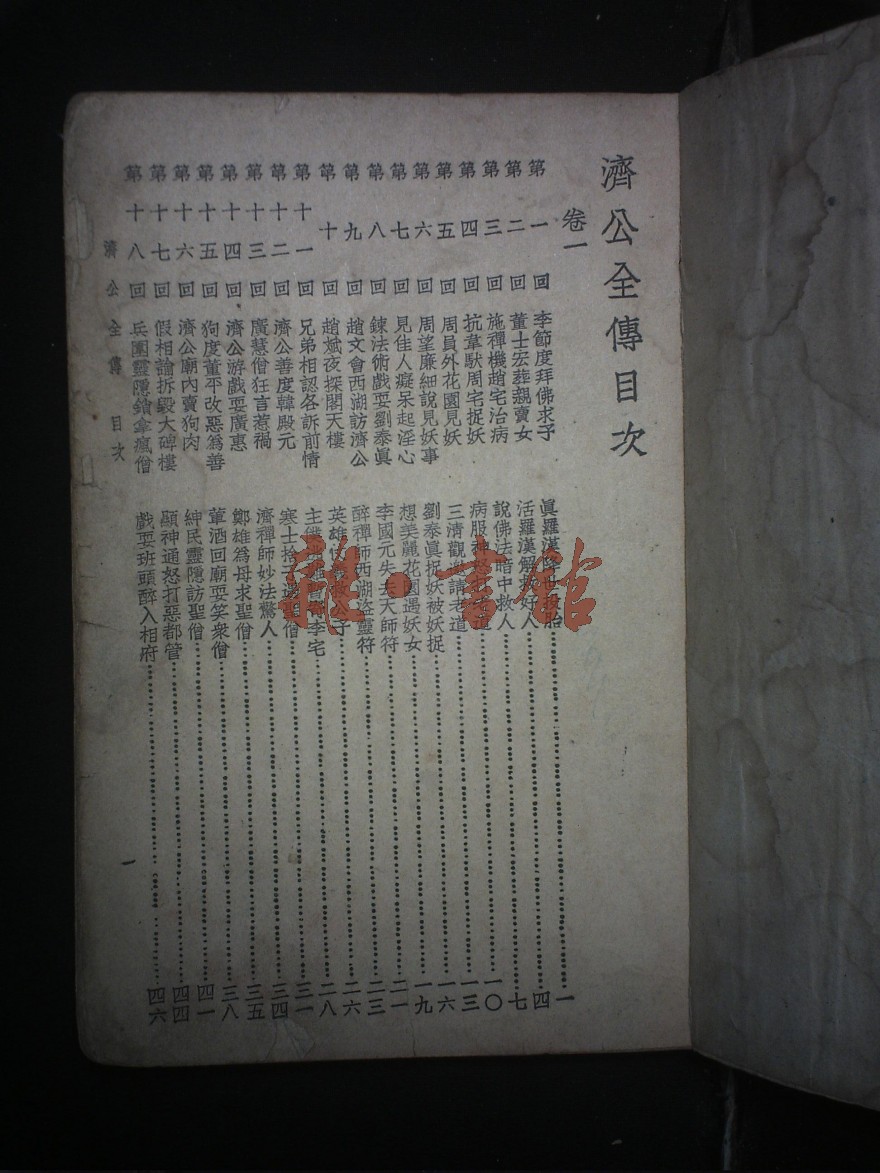 濟公全傳目次
卷一
第一回 李節度拜佛求子 眞羅漢降世投胎 一
第二回 董士宏葬親賣女 活羅漢解救好人 四
第三回 施禪機趙宅治病 說佛法暗中救人 七
第四回 抗韋馱周宅捉妖 病服神 一〇
第五回 周員外花園見妖 三清觀邀請老道 一三
第六回 周望廉細說見妖事 劉泰眞捉妖被妖捉 一六
第七回 見佳人癡呆起淫心 想美麗花園遇妖女 一九
第八回 鍊法術戲耍劉泰眞 李國元失去天師符 二一
第九回 趙文會西湖訪濟公 醉禪師西湖盜靈符 二三
第十回 趙斌夜探閣天樓 英雄仗義救公子 二六
第十一回 兄弟相認各訴前情 主僕李宅 二八
第十二回 濟公善度韓殿元 寒士捨子遇聖僧 三一
第十三回 廣慧僧狂言惹禍 濟禪師妙法驚人 三四
第十四回 濟公游戲耍廣惠 鄭雄爲母求聖僧 三五
第十五回 狗度董平改惡爲善 葷酒回廟耍笑衆僧 三八
第十六回 濟公廟內賣狗肉 紳民靈隱訪聖僧 四一
第十七回 假相諭拆毀大碑樓 顯神通怒打惡都管 四四
第十八回 兵圍靈隱鎖拿瘋僧 戲耍班頭醉入相府 四六
濟公全傳 目次
一
龍·書館